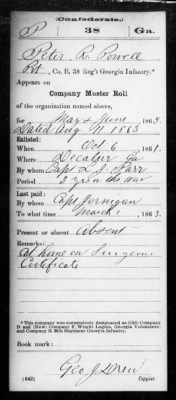 (Confederate.)
P 38 Ga.
Peter R. Powell
Pvt, Co. B, 38 Reg't Georgia Infantry.*
Appears on
Company Muster Roll
of the organization named above,
for May & June, 1863.
Dated Aug 11 1863
Enlisted:
When Oct. 6, 1861.
Where Decatur Ga
By whom Capt L. J. Farr
Period 3 yrs or the war
Last paid:
By whom Capt Jernigan
To what time March 1, 1863.
Present or absent Absent
Remarks:
at home on Surgeons
Certificate
*This company was successively designated as (Old) Company
D and (New) Company F, Wright Legion, Georgia Volunteers,
and Company B, 38th Regiment Georgia Infantry.
Book mark:
Geo J Drew
(642) Copyist.